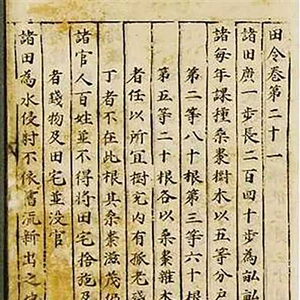 田令卷第二十一
諸田廣一步長二百四十步為畝畝
諸每年課種桑棗樹木以五等分戶
第二等八十根第三等六十根
第五等二十根各以桑棗雜木
者任以所宜樹充內有孤老殘
丁者不在此根其桑棗滋茂仍
諸官人百姓並不得將田宅捨施及
者錢物及田宅並沒官
諸田為水侵射不依舊流新出之地